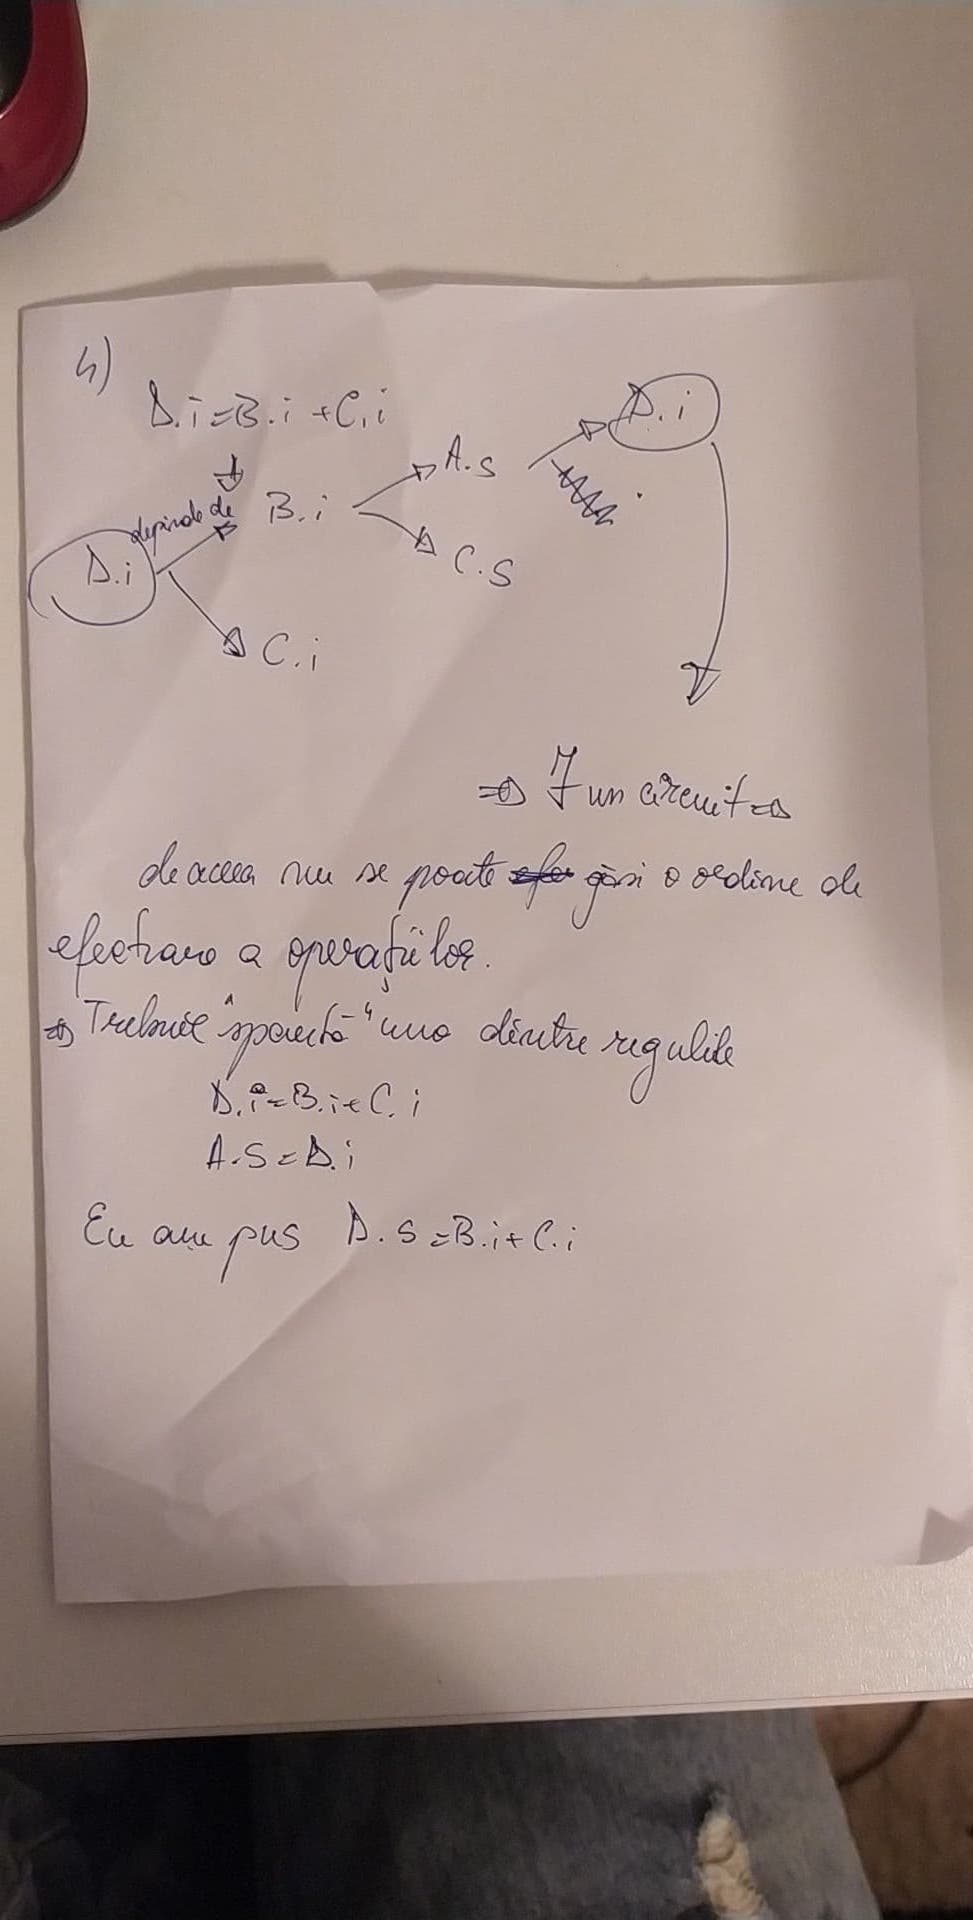 4)
D.i=B.i+C.i
D.i
A.s
depinde de B.i
D.i
C.s
C.i
=> ∃ un circuit =>
de aceea nu se poate găsi o ordine de
efectuare a operațiilor.
=> Trebuie "spartă" una dintre regulile
D.i=B.i+C.i
A.s=D.i
Eu am pus D.s=B.i+C.i